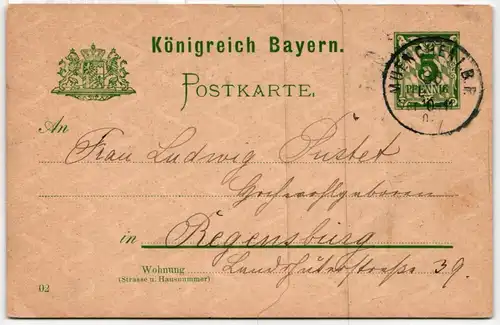 Königreich Bayern.
POSTKARTE.
5
PFENNIG
MUENCHEN I.B.P.
An
Frau Ludwig Pustet
Hochwohlgeboren
in Regensburg
Wohnung
(Strasse u. Hausnummer)
Landshuterstraße 39.
02